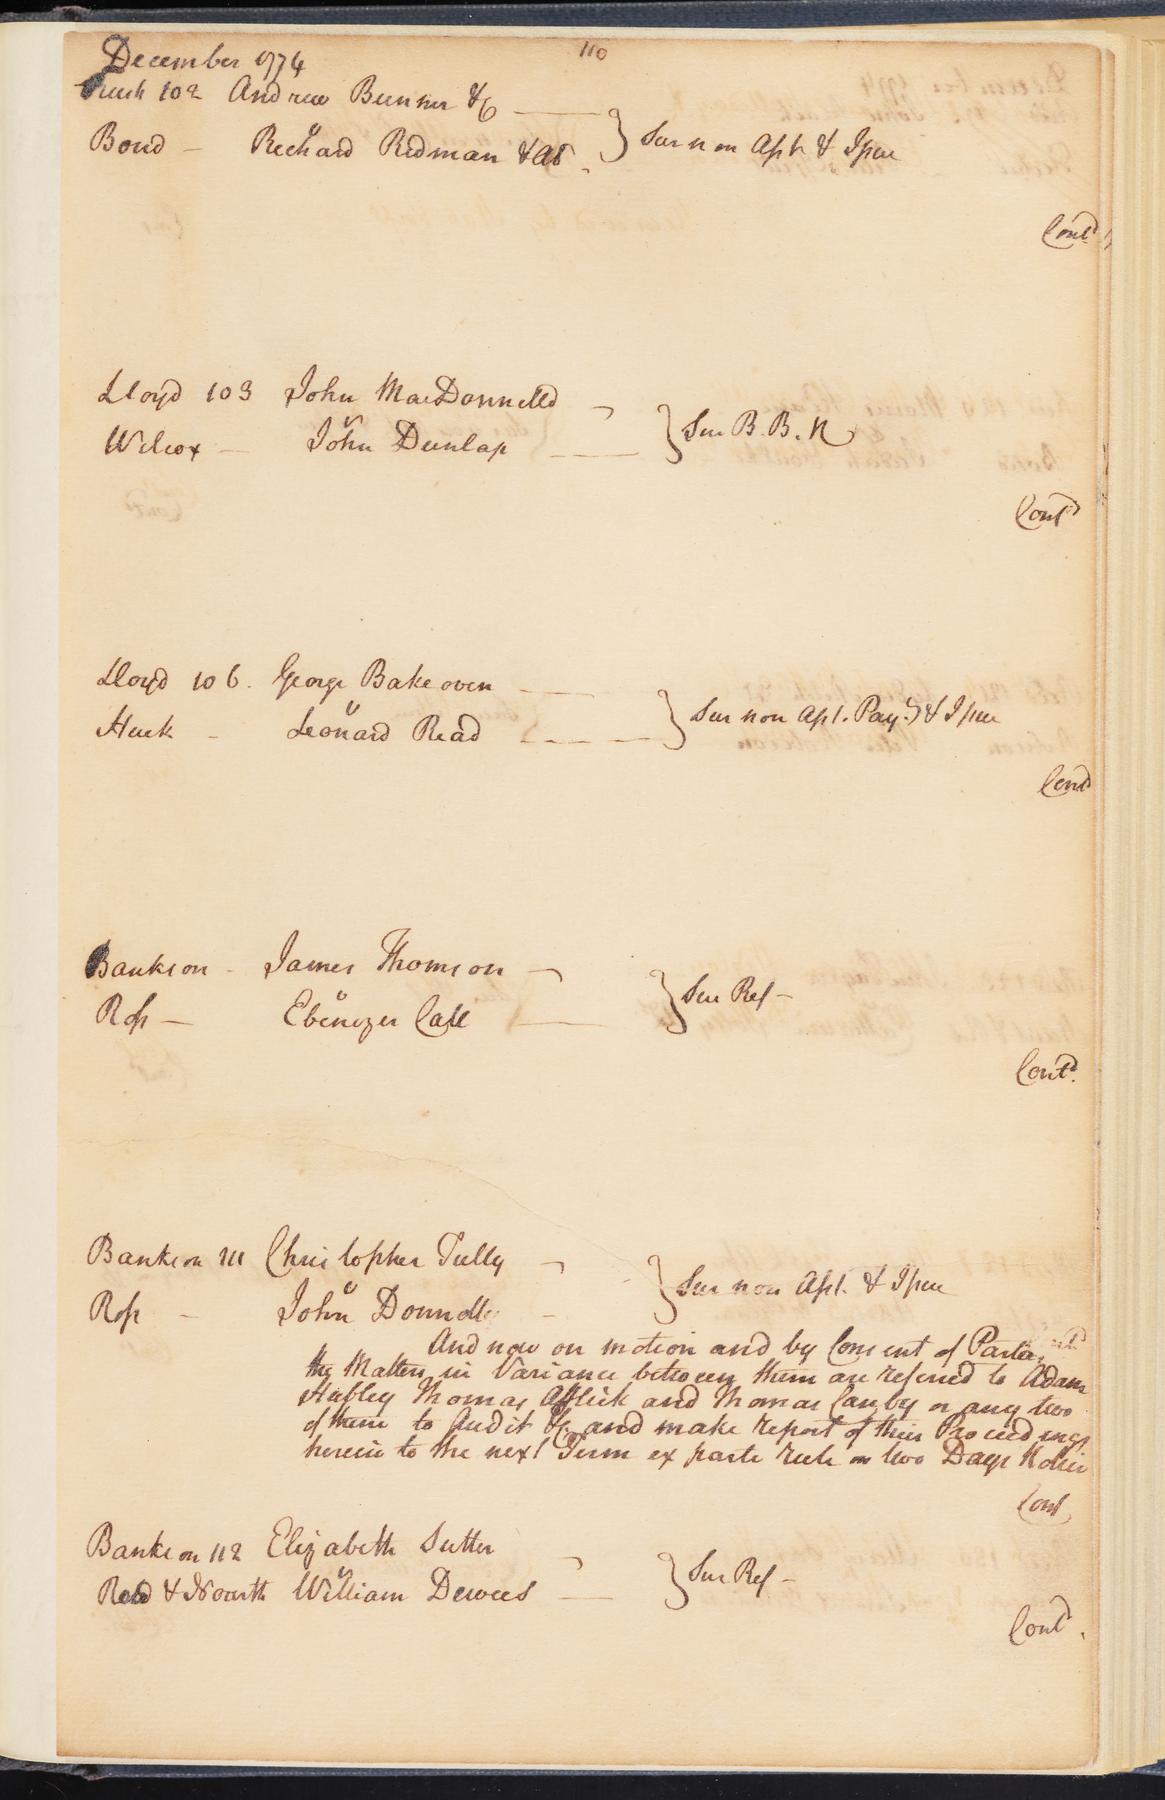 110
December 1774
102 Andrew Bunner &c
v
Bond - Richard Redman & al
Sur non Apt & Issue
Contd
Lloyd 103 John MacDonnelld
v
Wilcox - John Dunlap
Sur B. B. R
Contd
Lloyd 106. George Bakeoven
v
Huck - Leonard Read
Sur non Apt. Pay.t & Issue
Contd
Bankson - James Thomson
v
Ross - Ebenezer Call
Sur Ref -
Contd.
Bankson 111 Christopher Tully
v
Ross - John Donnelly
Sur non Apt. & Issue
And now on motion and by Consent of Parties
the Matters in Variance between them are referred to Adam
Hubley Thomas Afflick and Thomas Canby or any two
of them to Audit &c and make report of their Proceedings
herein to the next Term ex parte rule on two Days Notice
Cont
Bankson 112 Elizabeth Sutter
v
Read & Noarth William Dewees
Sur Ref -
Contd.